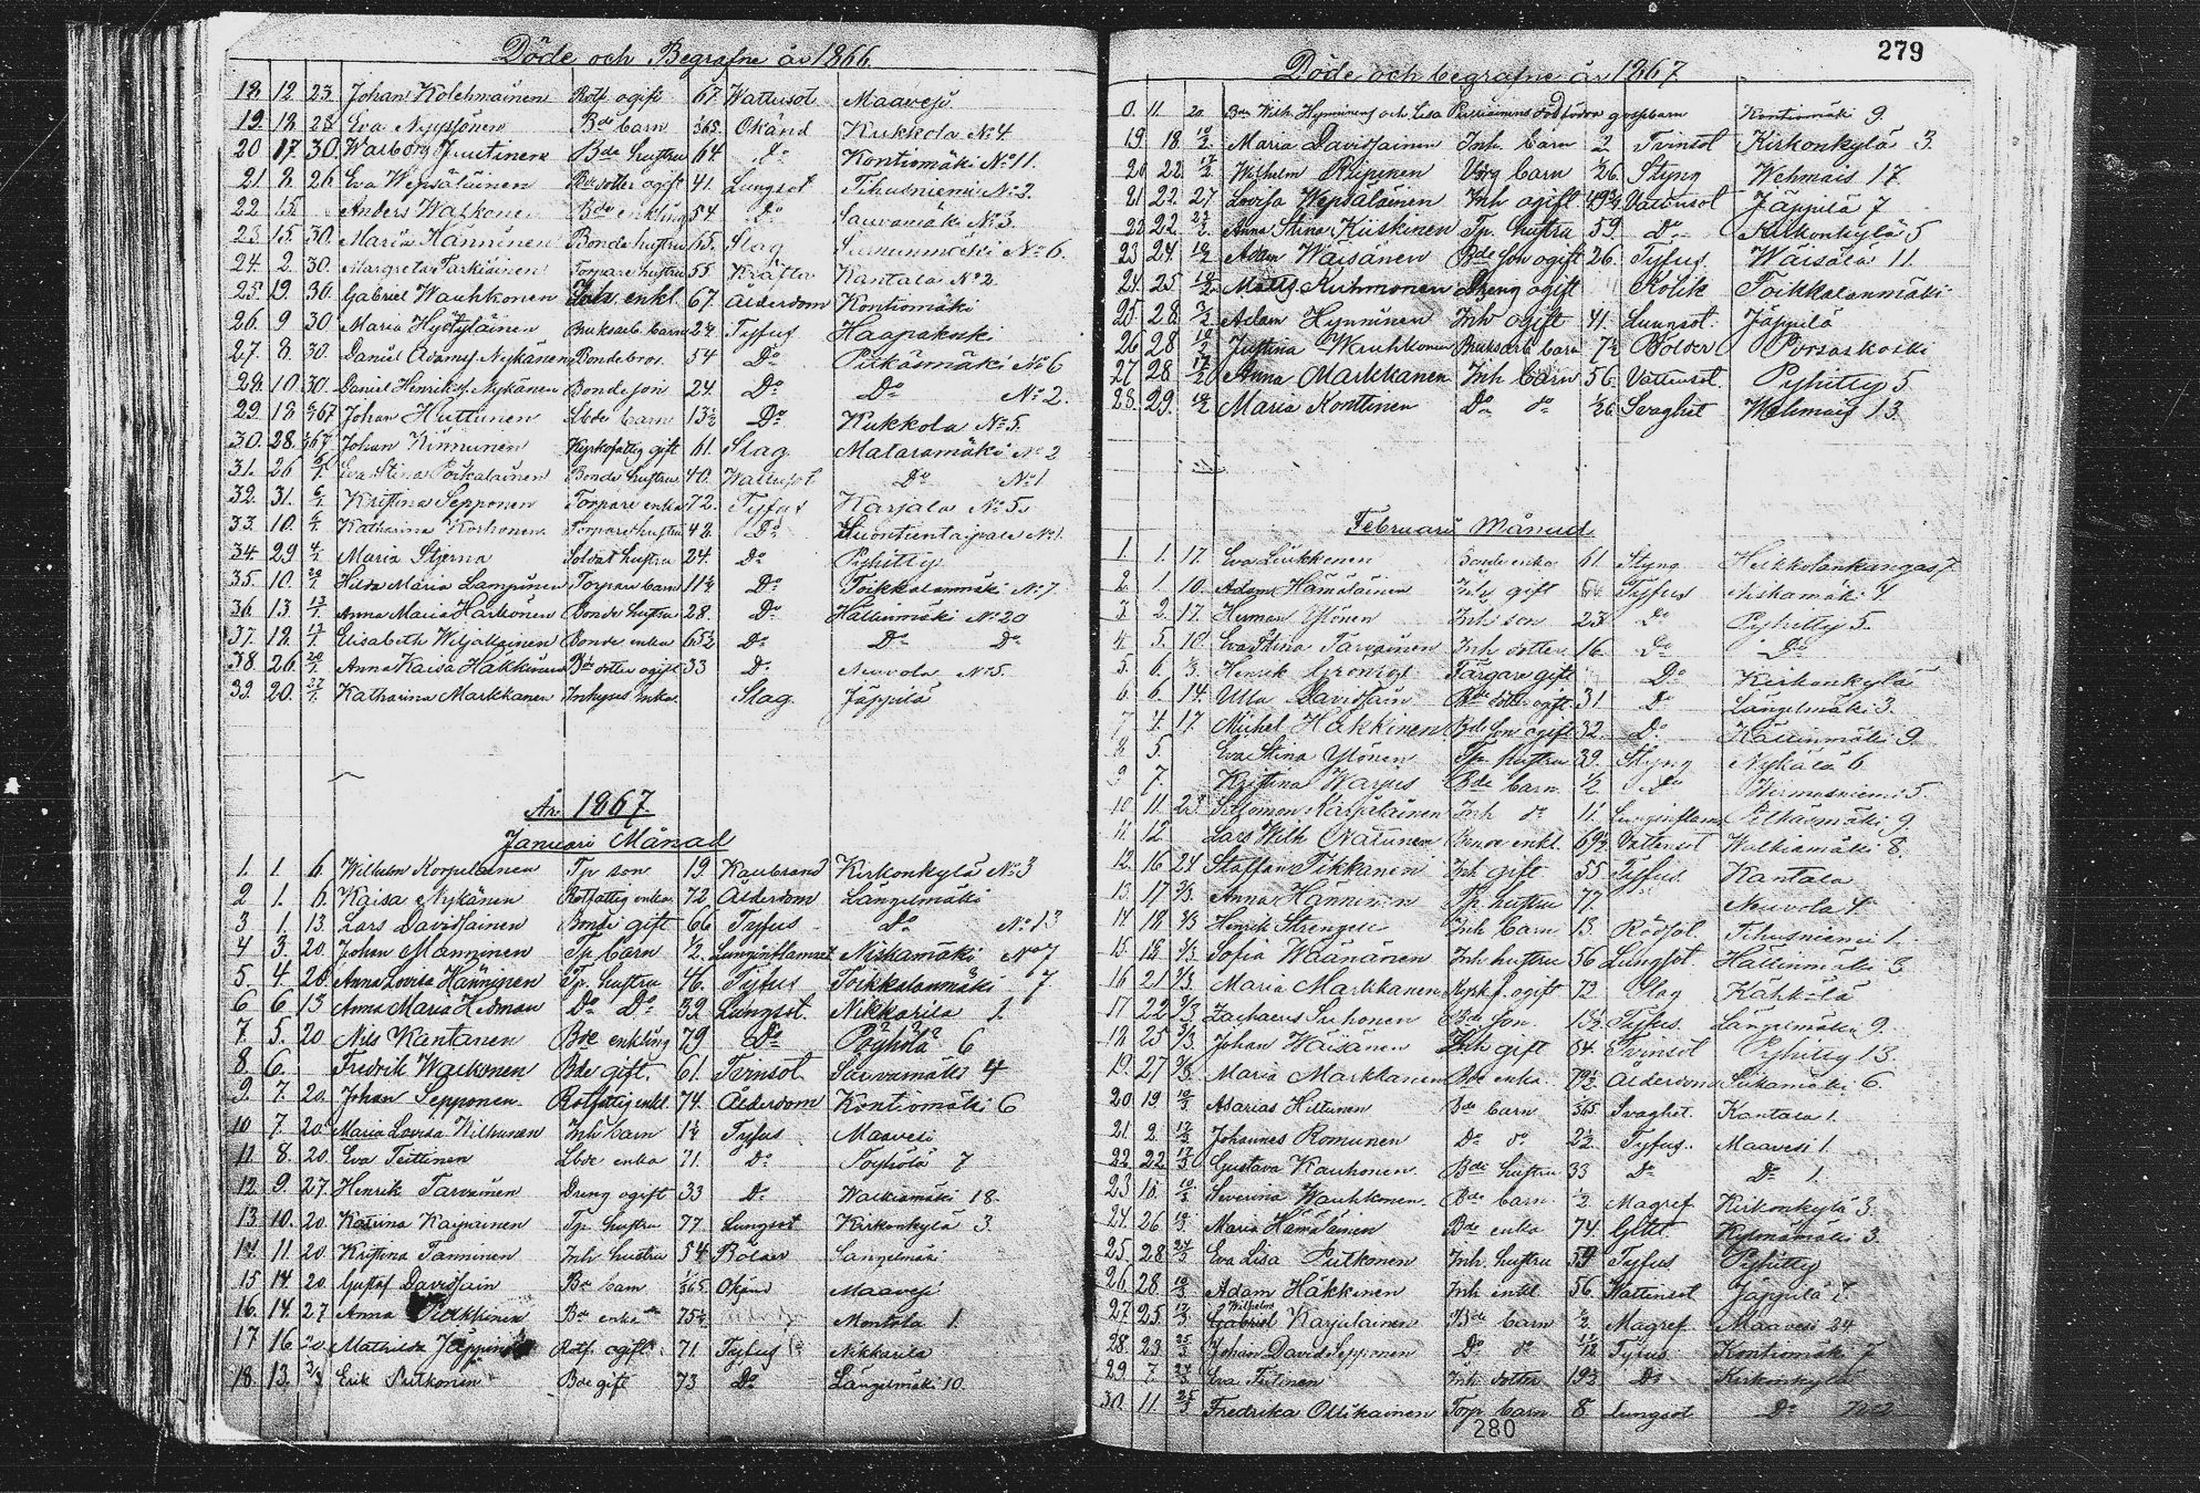 Döde och Begrafne år 1866.
18. 12 23 Johan Kolehmainen Rotf ogift 67 Wattusot Maavesi
19. 18 28 Eva Nyyssönen Bde barn 1/365 Okänd Kukkola No 4
20 17 30 Walborg Juutinen Bde hustru 64 Do Kontiomäki No 11.
21. 8 26 Eva Wepsäläinen Bde dotter ogift 41. Lungsot Tihusniemi No 2.
22 15. Anders Walkonen Bde enkling 54 Do Sauvamäki No 3.
23 15. 30. Maria Hänninen Bonde hustru 65. Slag No 6.
24. 2. 30. Margreta Parkkinen Torpare hustru 55 Kräfta Kantala No 2
25. 19. 30. Gabriel Wauhkonen enkl. 67. Ålderdom Kontiomäki
26. 9 30 Maria Hyötyläinen Bruksarb. barn 2 1/2 Tyfus Haapakoski
27. 8. 30. Daniel Adamsf. Nykänen Bondebror. 54 Do Pitkäsmäki No 6
28. 10 30 Daniel Henriksf. Nykänen Bondeson 24. Do Do No 2.
29 18 6/1 67 Johan Huttunen Lbde barn 13 1/2 Do Kukkola No 5.
30. 28. 6/1 67 Johan Kinnunen Kyrkofattig gift 61. Slag Mataramäki No 2
31. 26 6/1 Eva Stina Poikalainen Bonde hustru 40. Wattusot Do No 1
32. 31. 6/1 Kristina Sepponen Torpare enka 72. Tyfus Karjala No 5.
33. 10. 6/1 Katharina Korhonen Torpare hustru 48. Do No 1.
34. 29 4/2 Maria Stjerna Soldat hustru 24. Do Pyhitty
35. 10. 20/1 Hilda Maria Lampinen Torpare barn 11 1/2 Do Toikkalanmäki No 7
36. 13 13/1 Anna Maria Harkonen Bonde hustru 28. Do Hällinmäki No 20
37. 18. 13/1 Elisabeth Wiljakainen Bonde enka 65 1/2 Do Do Do
38. 26 20/1 Anna Kaisa Häkkinen Bde dotter ogift 33 Do Neuvola No 5.
39. 20. 27/1 Katharina Markkanen Inhyses enka. Slag. Jäppilä
År 1867
Januari Månad
1. 1 6. Wilhelm Korpelainen Tp son 19. Kallbrand Kirkonkylä No 3
2 1. 6. Kaisa Nykänen Rotfattig enka 72. Ålderdom Längelmäki
3 1. 13. Lars Davidsainen Bonde gift 66 Tyfus Do No 13
4 3. 20. Johan Manninen Tp barn 1/2. Lunginflamat Niskamäki No 7
5. 4 20. Anna Lovisa Hänninen Tp. hustru 46. Tyfus Toikkalanmäki 7.
6 6 13 Anna Maria Hedman Do Do 39 Lungsot. Nikkarila 1.
7. 5. 20 Nils Kientanen Bde enkling 79 Do Pöyhölä 6
8. 6. Fredrik Walkonen Bde gift. 61. Tvinsot Sauvamäki 4
9. 7. 20. Johan Sepponen Rotfattig enkl. 74. Ålderdom Kontiomäki 6
10 7. 20. Maria Lovisa Kilkunen Inh barn 1 1/2 Tyfus Maavesi
11 8. 20 Eva Teittinen Lbde enka 71. Do Pöyhölä 7
12. 9. 27. Henrik Tarvainen Dreng ogift 33 Do Walkiamäki 18.
13 10. 20. Katrina Kaipainen Tp. hustru 77. Lungsot Kirkonkylä 3.
14. 11. 20. Kristina Tanninen Inh hustru 54 Bölder Längelmäki
15 14. 20. Gustaf Davidsain Bde barn 1/365. Okänd Maavesi
16. 14. 27 Anna Pulkkinen Bde enka 75 1/2 Montola 1.
17 16 20 Mathilda Jäppinen Rotf. ogift. 71. Tyfus Nikkarila
18. 13. 3/2 Erik Putkonen Bde gift 73 Do Längelmäki 10.
279
Döde och begrafne år 1867
11. 20 Bde Wilh. Hynninens och Lisa dödfödda gossbarn Kontiomäki 9.
19. 18. 10/2. Maria Davidsainen Inh. barn 2 Tvinsot Kirkonkylä 3.
20 22. 17/2 Wilhelm Piipinen barn 1/26. Styng Wehmais 17.
21 22. 27 Lovisa Wepsäläinen Inh ogift 49 3/4. Vattusot Jäppilä 7
22 22. 27/2. Anna Stina Kiiskinen Tp. hustru 59 Do Kirkonkylä 5
23 24. 10/2 Adam Wäisänen Bde son ogift 26. Tyfus Wäisälä 11.
24. 25 10/2. Matts Kuhmonen Dreng ogift Kolik Toikkalanmäki
25. 28. 3/2 Adam Hynninen Inh ogift 41. Lungsot. Jäppilä
26 28 10/2 Justina Wauhkonen Bruksarb barn 7 1/2 Bölder Porsaskoski
27 28 17/2 Anna Markkanen Inh barn 56. Vattusot. Pyhitty 5.
28. 29. 10/2 Maria Konttinen Do do 1/26. Svaghet Wehmais 13.
Februari Månad
1. 1. 17. Eva Liukkonen Bonde enka 61. Styng Heikkolankangas 7
2 1. 10. Adam Hämäläinen Inh gift Tyfus Niskamäki 4
3. 2. 17. Herman Ylönen Inh son 23. Do Pyhitty 5.
4. 5. 10 Eva Stina Tarvainen Inh dotter 16. Do Do
5. 6. 3. Henrik Grönqvist Färgare gift " Do Kirkonkylä
6. 6. 14. Ulla Davidsain Bde dotter ogift 31. Do Längelmäki 3.
7. 4. 17. Michel Häkkinen Bde son ogift 32. Do Hällinmäki 9.
8 5. Eva Stina Ylönen Tp. hustru 39. Styng Nykälä 6.
9 7. Kristina Warpus Bde barn 1/2. Do Wermasniemi 5.
10 11. 23 Salomon Karjalainen Inh do 11. Lunginflam. Pitkäsmäki 9
11 12. Lars Wilh Natunen Bonde enkl. 69 1/2 Vattusot Walkiamäki 8.
12. 16 24 Staffan Tikkanen Inh gift 55 Tyfus. Kantala
13. 17 3/3. Anna Hänninen Tp. hustru 77. Neuvola 4.
14 18 3/3 Henrik Strengell Inh barn 13. Rödsot Tihusniemi 1.
15. 18. 3/3. Sofia Wäänänen Inh hustru 56 Lungsot. Hällinmäki 3
16 21 3/3. Maria Markkanen Kyrkf. ogift 72 Slag Kähkölä
17 22 3/3 Zachaeus Suhonen Bde son. 13 1/2 Tyfus. Längelmäki 9.
18 25 3/3. Johan Wäisänen Inh gift 64. Tvinsot Pyhitty 13.
19. 27 3/3. Maria Markkanen Bde enka. 79 1/2. Ålderdom Siikamäki 6.
20 19. 10/3 Asarias Hiltunen Bde barn 1/365 Svaghet. Kantala 1.
21. 2. 17/3 Johannes Romunen Do do 2 1/2. Tyfus. Maavesi 1.
22 22 17/3 Gustava Kauhonen Bde hustru 33 Do Do 1.
23 16. 10/3 Severina Wauhkonen Bde barn 1/2 Magref Kirkonkylä 3.
24. 26 10/3 Maria Hämäläinen Bde enka 74. Gikt. Kylmämäki 3.
25 28 24/3 Eva Lisa Putkonen Inh. hustru 59 Tyfus Pyhitty
26. 28. 10/3 Adam Häkkinen Inh enkl. 56. Wattusot Jäppilä 7.
Wilhelm
27. 25. 17/3 Gabriel Karjalainen Bde barn 1/2 Magref Maavesi 24
28. 23 25/3 Johan David Sepponen Do do 11/12 Tyfus Kontiomäki 7
29 7 24/3 Eva Teitinen Inh dotter 19 1/2 Do Kirkonkylä
30. 11 25/3 Fredrika Ollikainen Torp barn 8 Lungsot Do
280